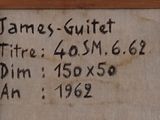 James-Guitet
Titre: 40SM.6.62
Dim : 150x50
An : 1962